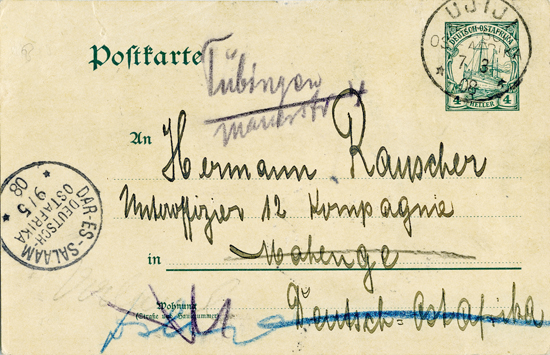 Postkarte
Tübingen
UJIJI
7 3
08
DEUTSCH-OSTAFRIKA
4 HELLER 4
An
Hermann Rauscher
Unteroffizier 12 Kompagnie
in Mahenge
Wohnung
(Straße und Hausnummer)
Deutsch-Ostafrika
DAR-ES-SALAAM
DEUTSCH-
OSTAFRIKA
9/5
08